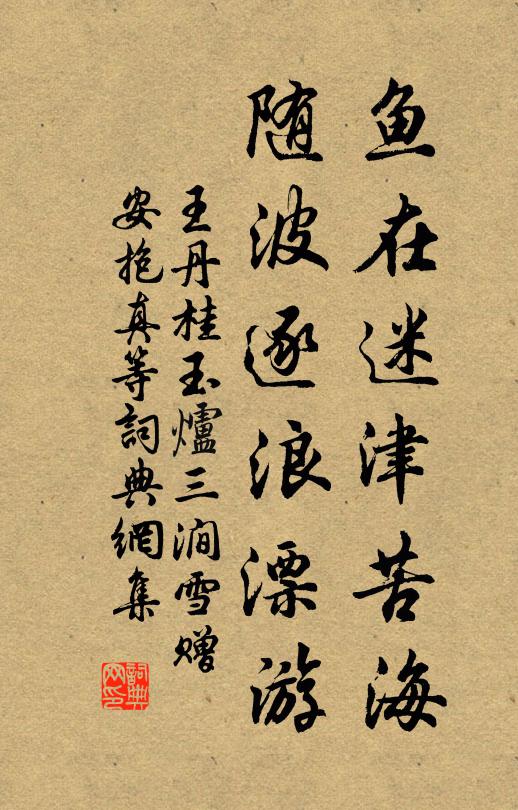 鱼在迷津苦海
随波逐浪漂游
王丹桂玉爐三澗雪赠
安抱真等詞典網集
詞典网印